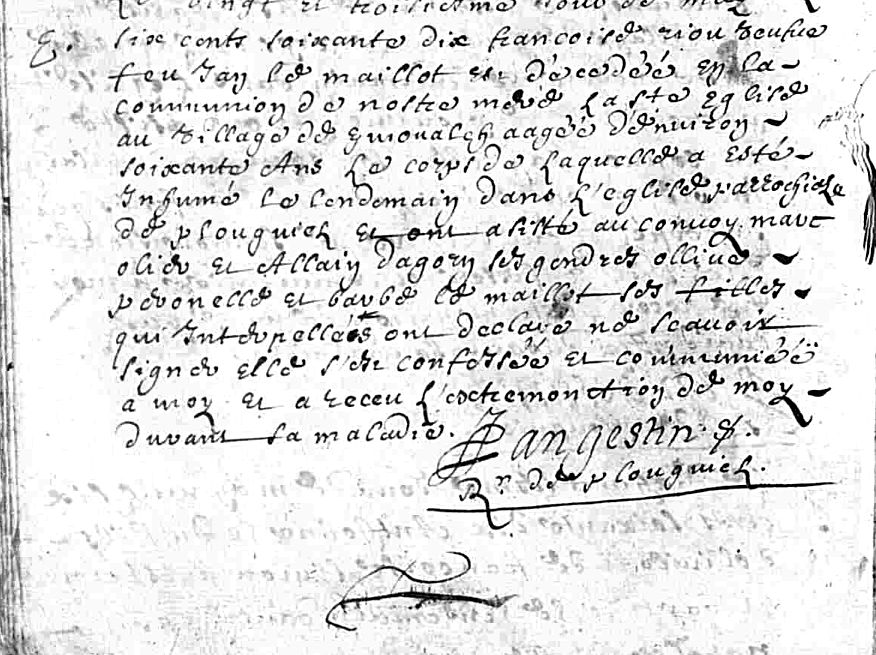 Le vingt et troisiesme jour de may
E. six cents soixante dix francoise riou veufve
feu Jan le maillot est décedéé en la
communion de nostre mere La ste Eglise
au village de aagéé denviron
soixante Ans Le corps de Laquelle a esté
Inhumé Le lendemain dans L'eglise parrochialle
de plouguiel Et ont asisté au convoy marc
olier et Allain dagorn ses gendres ollive
peronelle et barbe le maillot ses filles
qui Interpellées ont declaré ne scavoir
signer elle s'est confesséé et communiéé
a moy et a receu L'extremonction de moy
durant sa maladie.
Jan gestin
Rr. de plouguiel.